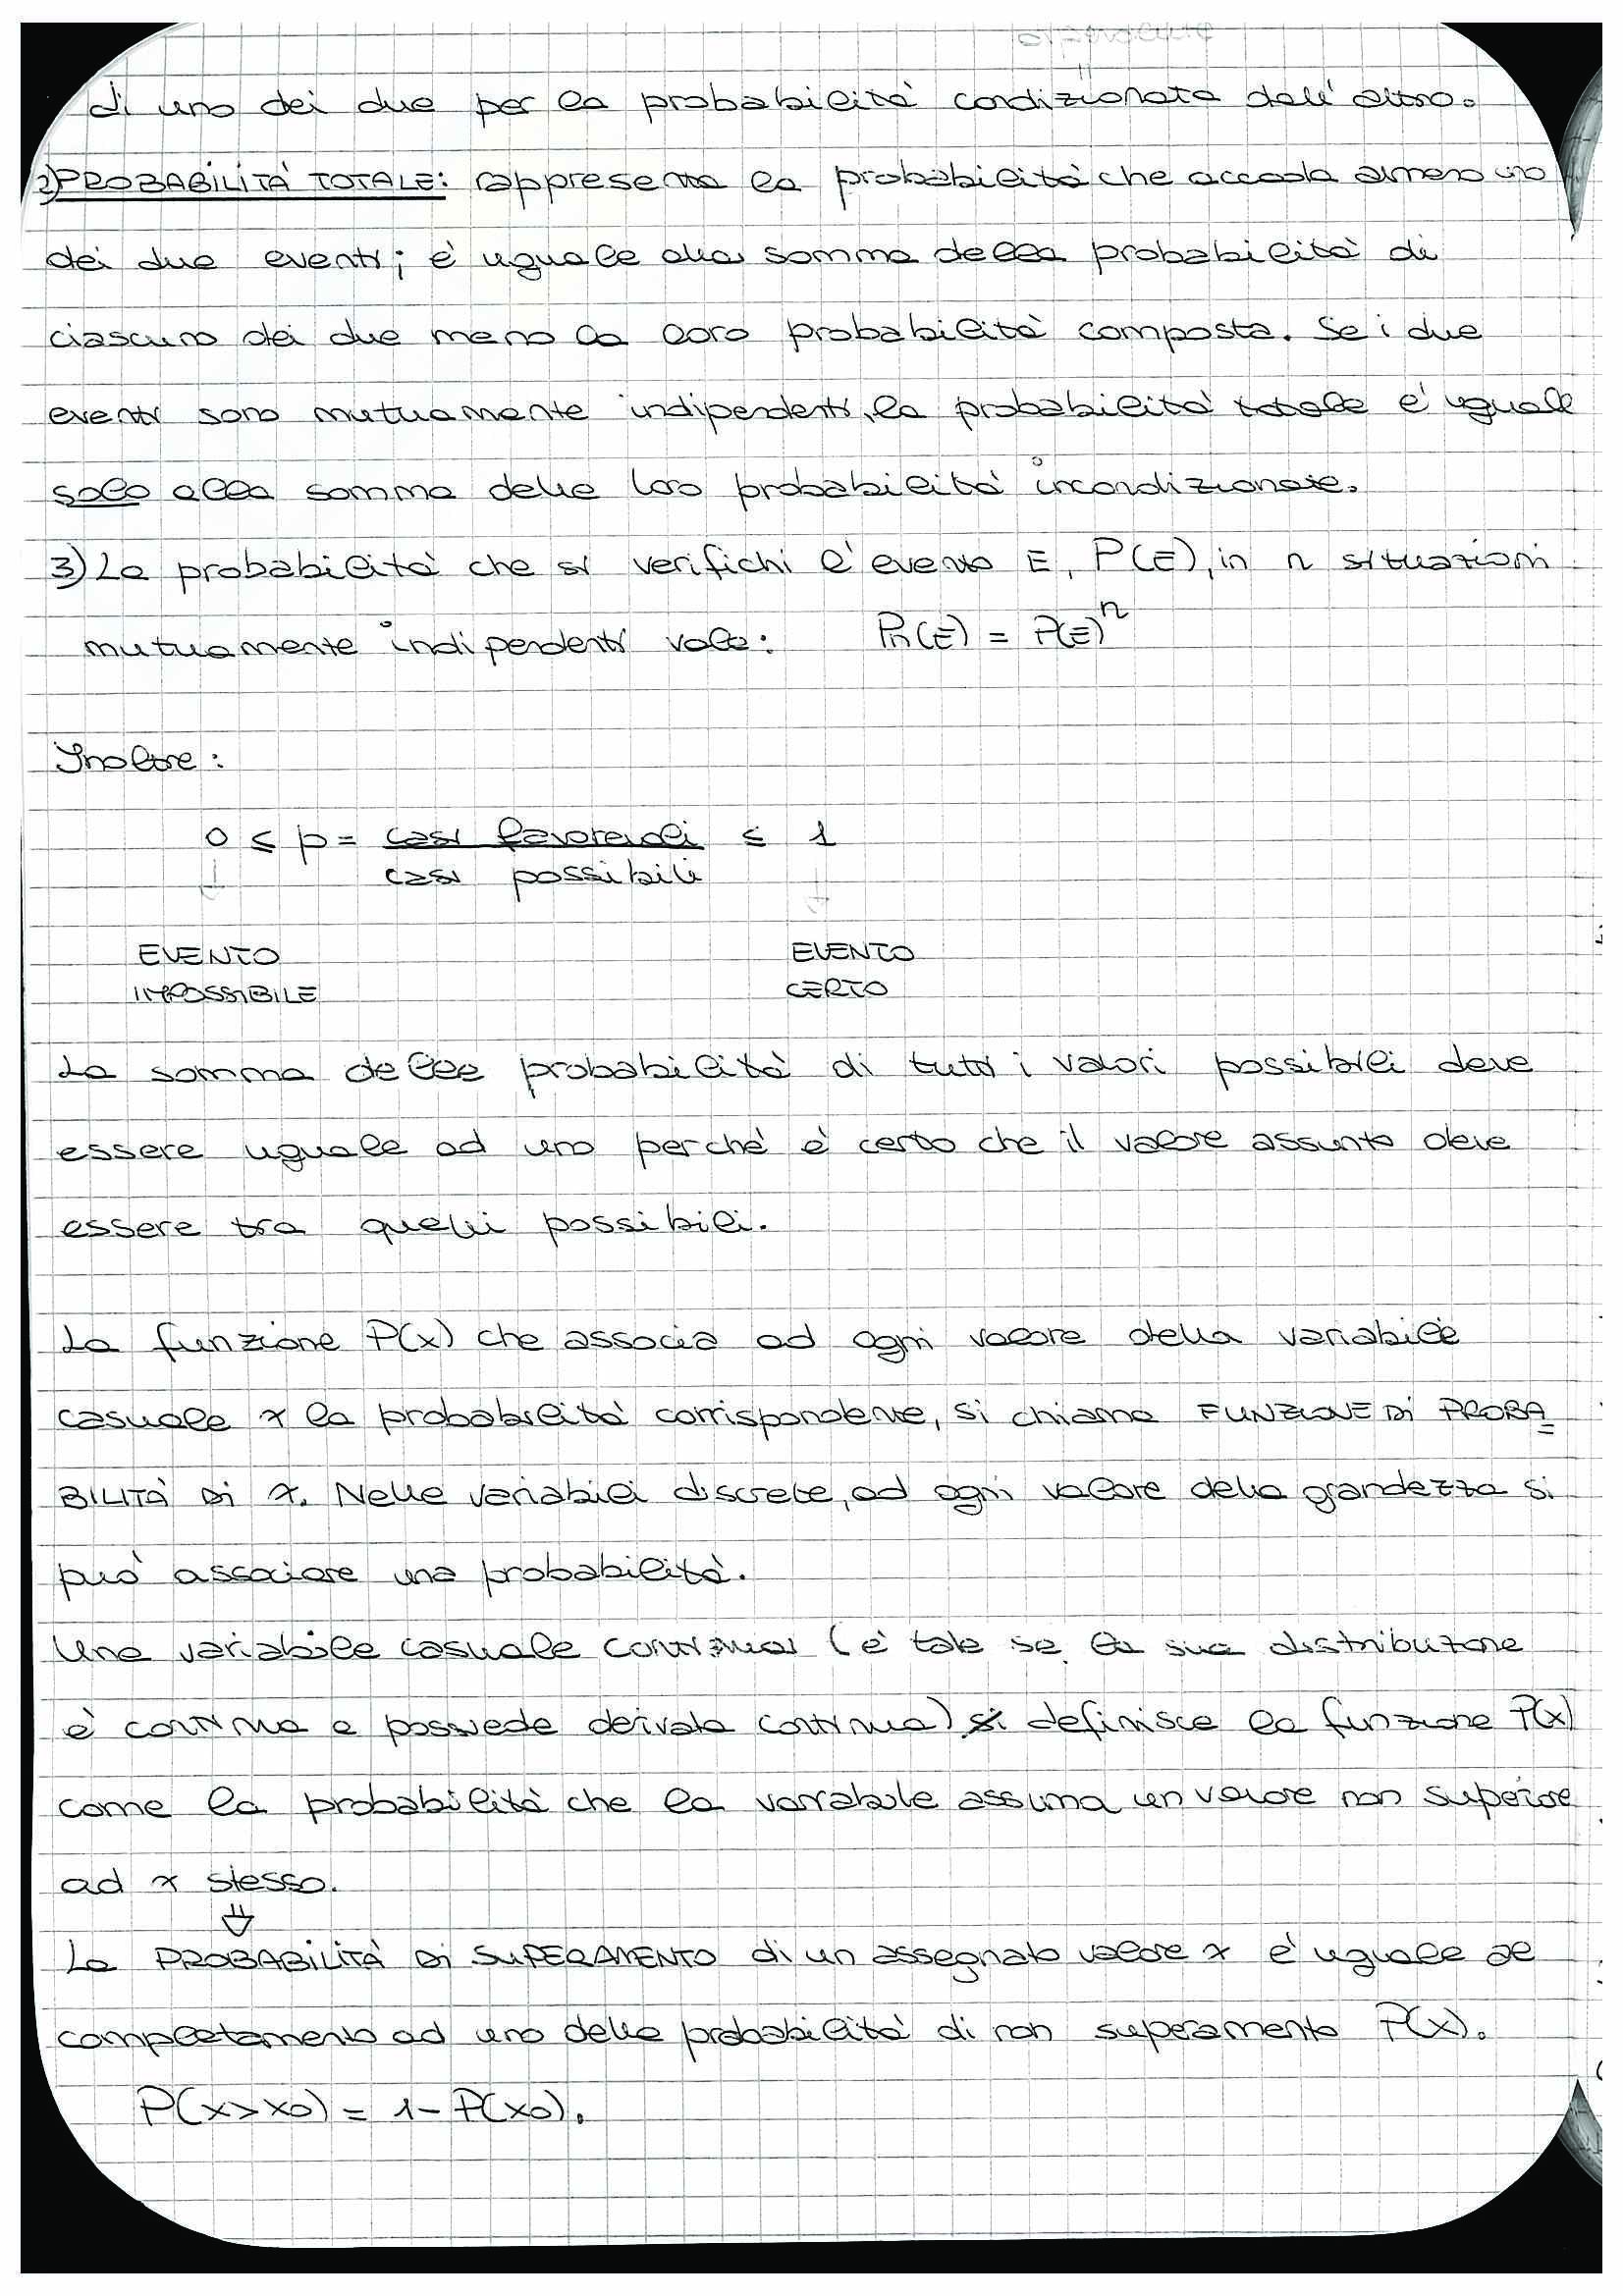 di uno dei due per la probabilità condizionata dell'altro.
2) PROBABILITÀ TOTALE: rappresenta la probabilità che accada almeno uno
dei due eventi; è uguale alla somma della probabilità di
ciascuno dei due meno la loro probabilità composta. Se i due
eventi sono mutuamente indipendenti, la probabilità totale è uguale
solo alla somma delle loro probabilità incondizionate.
3) La probabilità che si verifichi l'evento E, P(E), in n situazioni
mutuamente indipendenti vale: Pn(E) = P(E)^n
Inoltre:
0 ≤ p = casi favorevoli ≤ 1
casi possibili
↓ ↓
EVENTO EVENTO
IMPOSSIBILE CERTO
La somma delle probabilità di tutti i valori possibili deve
essere uguale ad uno perché è certo che il valore assunto deve
essere tra quelli possibili.
La funzione P(x) che associa ad ogni valore della variabile
casuale x la probabilità corrispondente, si chiama FUNZIONE DI PROBA=
BILITÀ DI x. Nelle variabili discrete, ad ogni valore della grandezza si
può associare una probabilità.
Una variabile casuale continua (è tale se la sua distribuzione
è continua e possiede derivata continua) si definisce la funzione P(x)
come la probabilità che la variabile assuma un valore non superiore
ad x stesso.
⇓
La PROBABILITÀ DI SUPERAMENTO di un assegnato valore x è uguale al
completamento ad uno della probabilità di non superamento P(x).
P(x>x0) = 1 - P(x0).